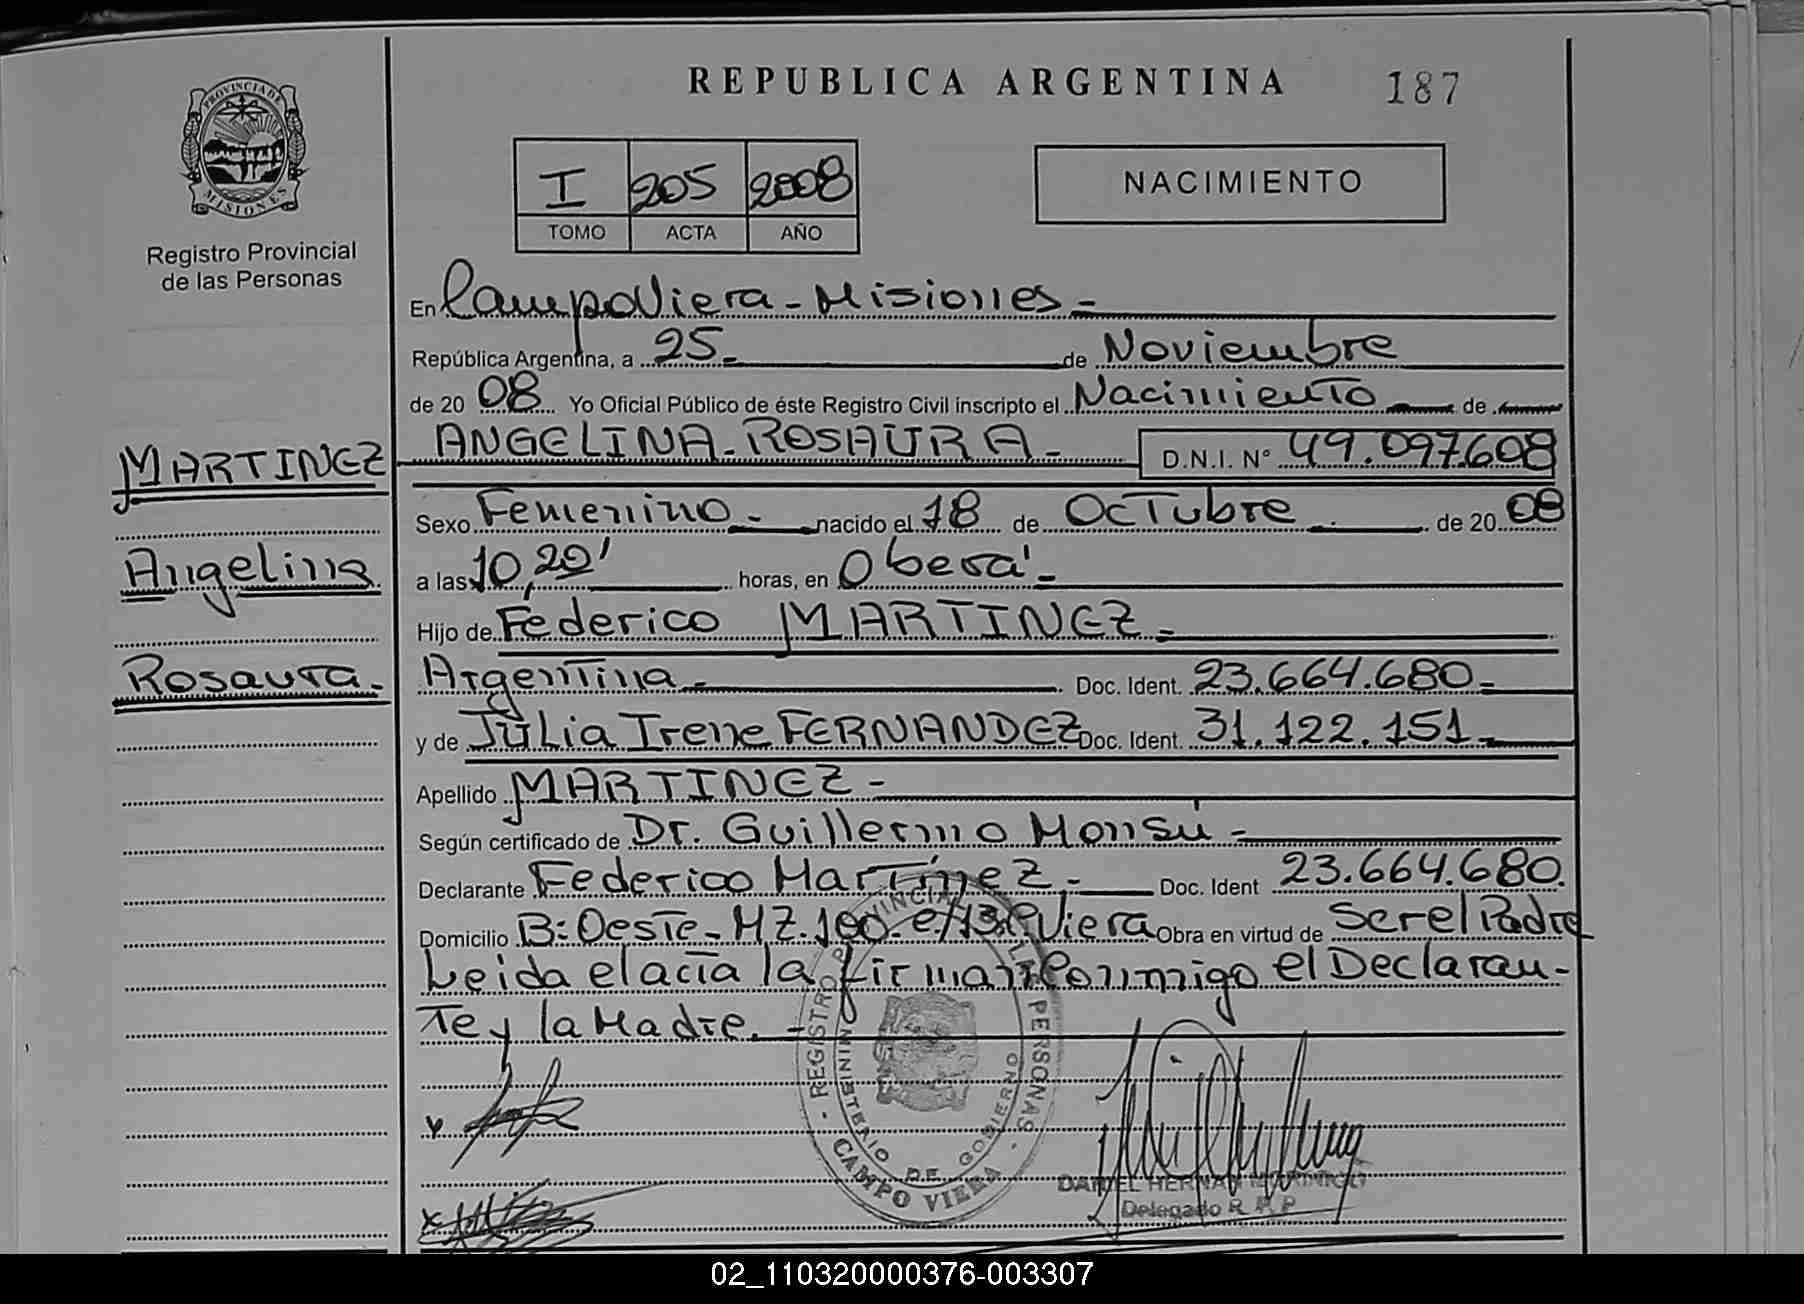 REPUBLICA ARGENTINA 187
PROVINCIA DE MISIONES
Registro Provincial
de las Personas
I 205 2008
TOMO ACTA AÑO
NACIMIENTO
En Campo Viera - Misiones -
República Argentina, a 25 - de Noviembre
de 20 08 Yo Oficial Público de éste Registro Civil inscripto el Nacimiento de
ANGELINA - ROSAURA - D.N.I. N° 49.097.608
MARTINEZ
Angelina
Rosaura.
Sexo Femenino - nacido el 18 de Octubre de 20 08
a las 10,20' horas, en Oberá -
Hijo de Federico MARTINEZ -
Argentina - Doc. Ident. 23.664.680 -
y de Julia Irene FERNANDEZ Doc. Ident. 31.122.151 -
Apellido MARTINEZ -
Según certificado de Dr. Guillermo Monsú -
Declarante Federico Martínez - Doc. Ident 23.664.680.
Domicilio B: Oeste - MZ. 100. Viera Obra en virtud de Ser el Padre
Leida el acta la firman Conmigo el Declaran-
te y la Madre. -
REGISTRO PROVINCIAL DE LAS PERSONAS
MINISTERIO DE GOBIERNO
CAMPO VIERA
DANIEL HERNAN
Delegado R P P
02_110320000376-003307